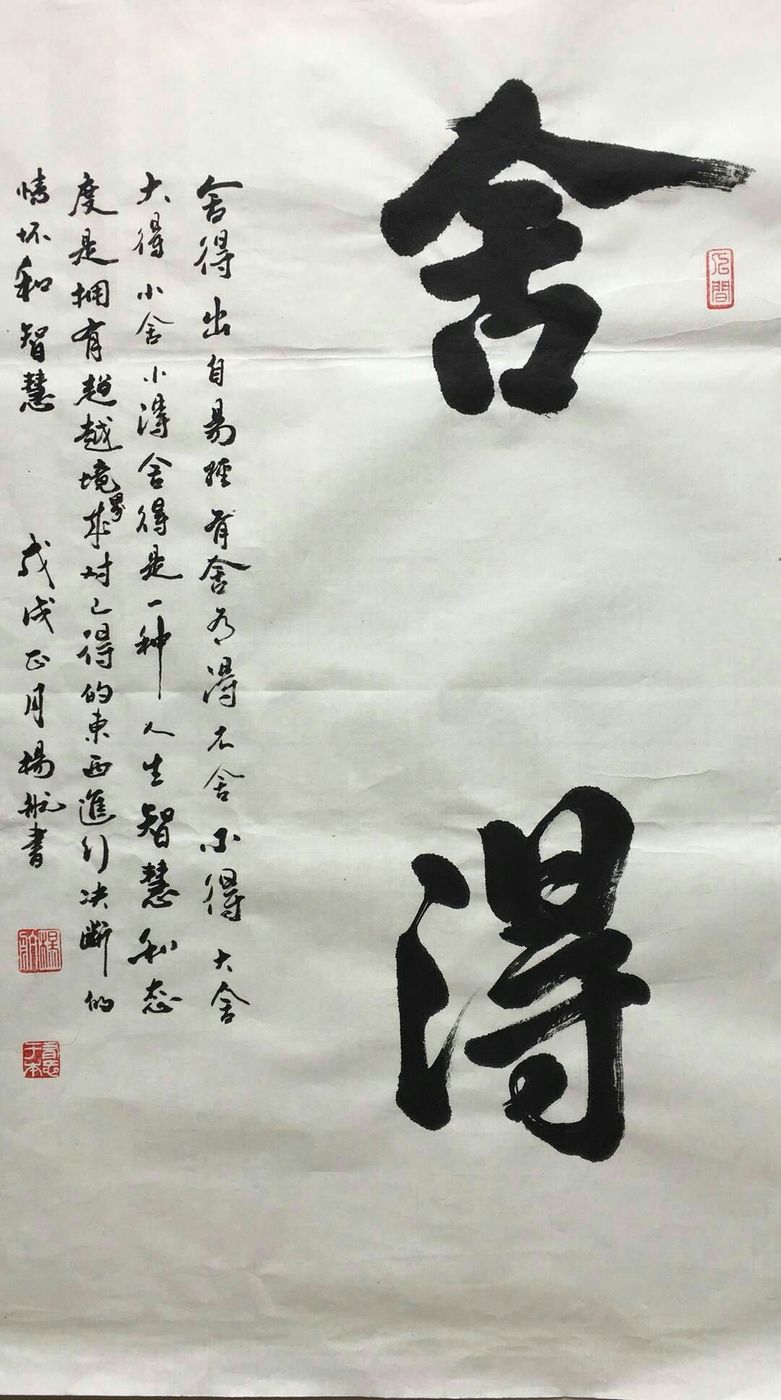 舍
得
舍得出自易經有舍有得不舍不得大舍
大得小舍小得舍得是一种人生智慧和态
度是拥有超越境界来对已得的東西進行决断的
情怀和智慧
戊戌正月楊航書